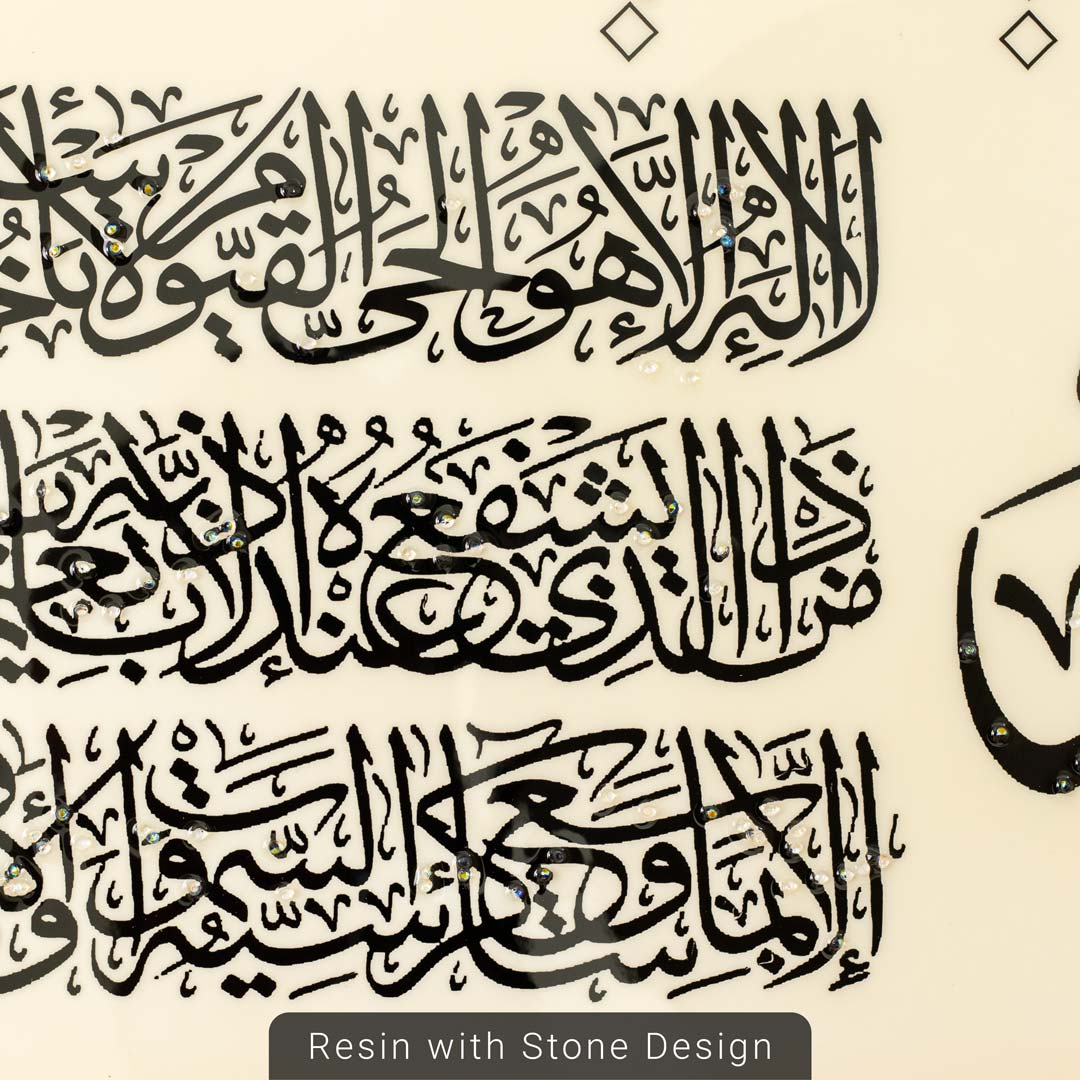 لَا إِلَٰهَ إِلَّا هُوَ الْحَيُّ الْقَيُّومُ لَا
مَن ذَا الَّذِي يَشْفَعُ عِندَهُ إِلَّا بِإِذْنِهِ
إِلَّا بِمَا شَاءَ وَسِعَ كُرْسِيُّهُ السَّمَٰوَٰتِ
Resin with Stone Design